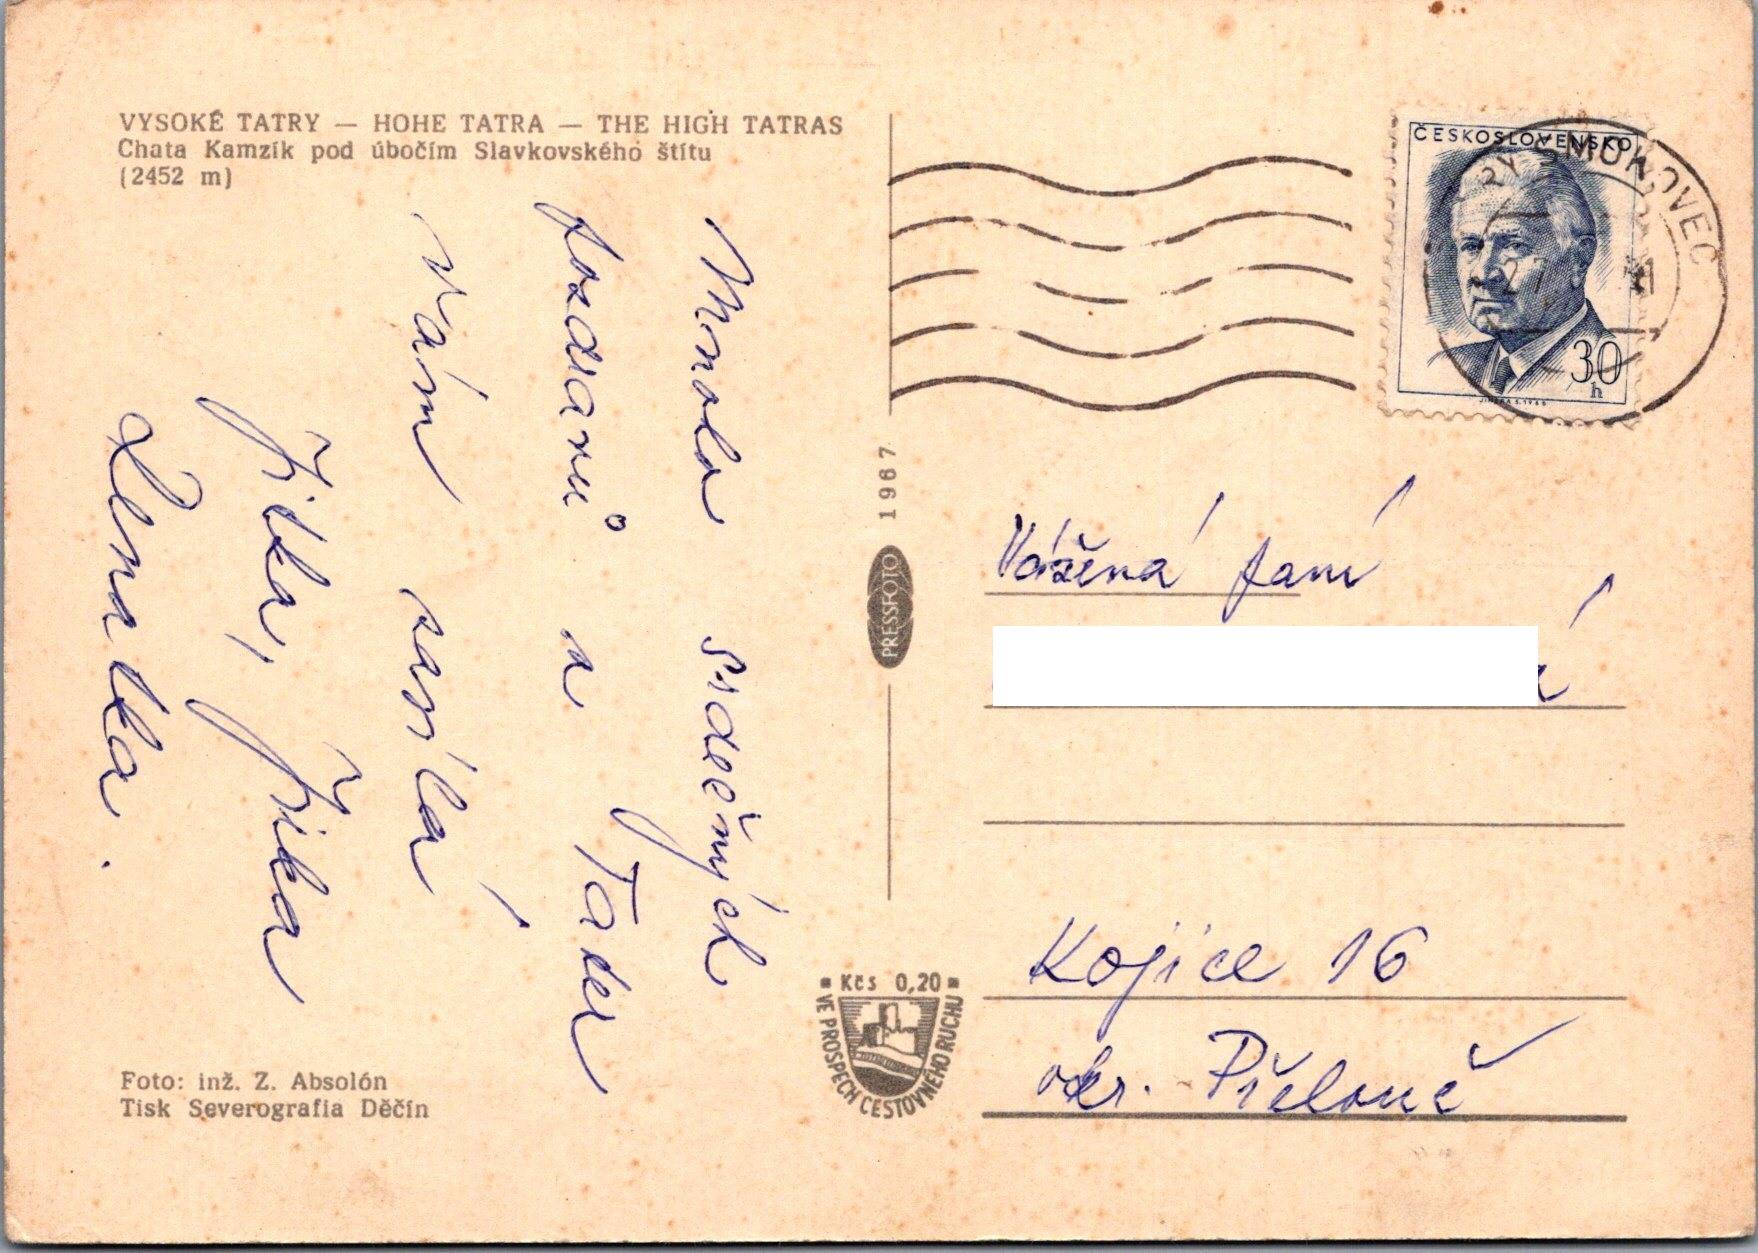 VYSOKÉ TATRY — HOHE TATRA — THE HIGH TATRAS
Chata Kamzík pod úbočím Slavkovského štítu
(2452 m)
Mnoho srdečných
pozdravů z Tater
Vám zasílá
Jitka, Jirka
Lenka.
Foto: inž. Z. Absolón
Tisk Severografia Děčín
1967
PRESSFOTO
Kčs 0,20
VE PROSPĚCH CESTOVNÉHO RUCHU
ČESKOSLOVENSKO
30
h
SMOKOVEC
27
Vážená paní
á
Kojice 16
okr. Přelouč